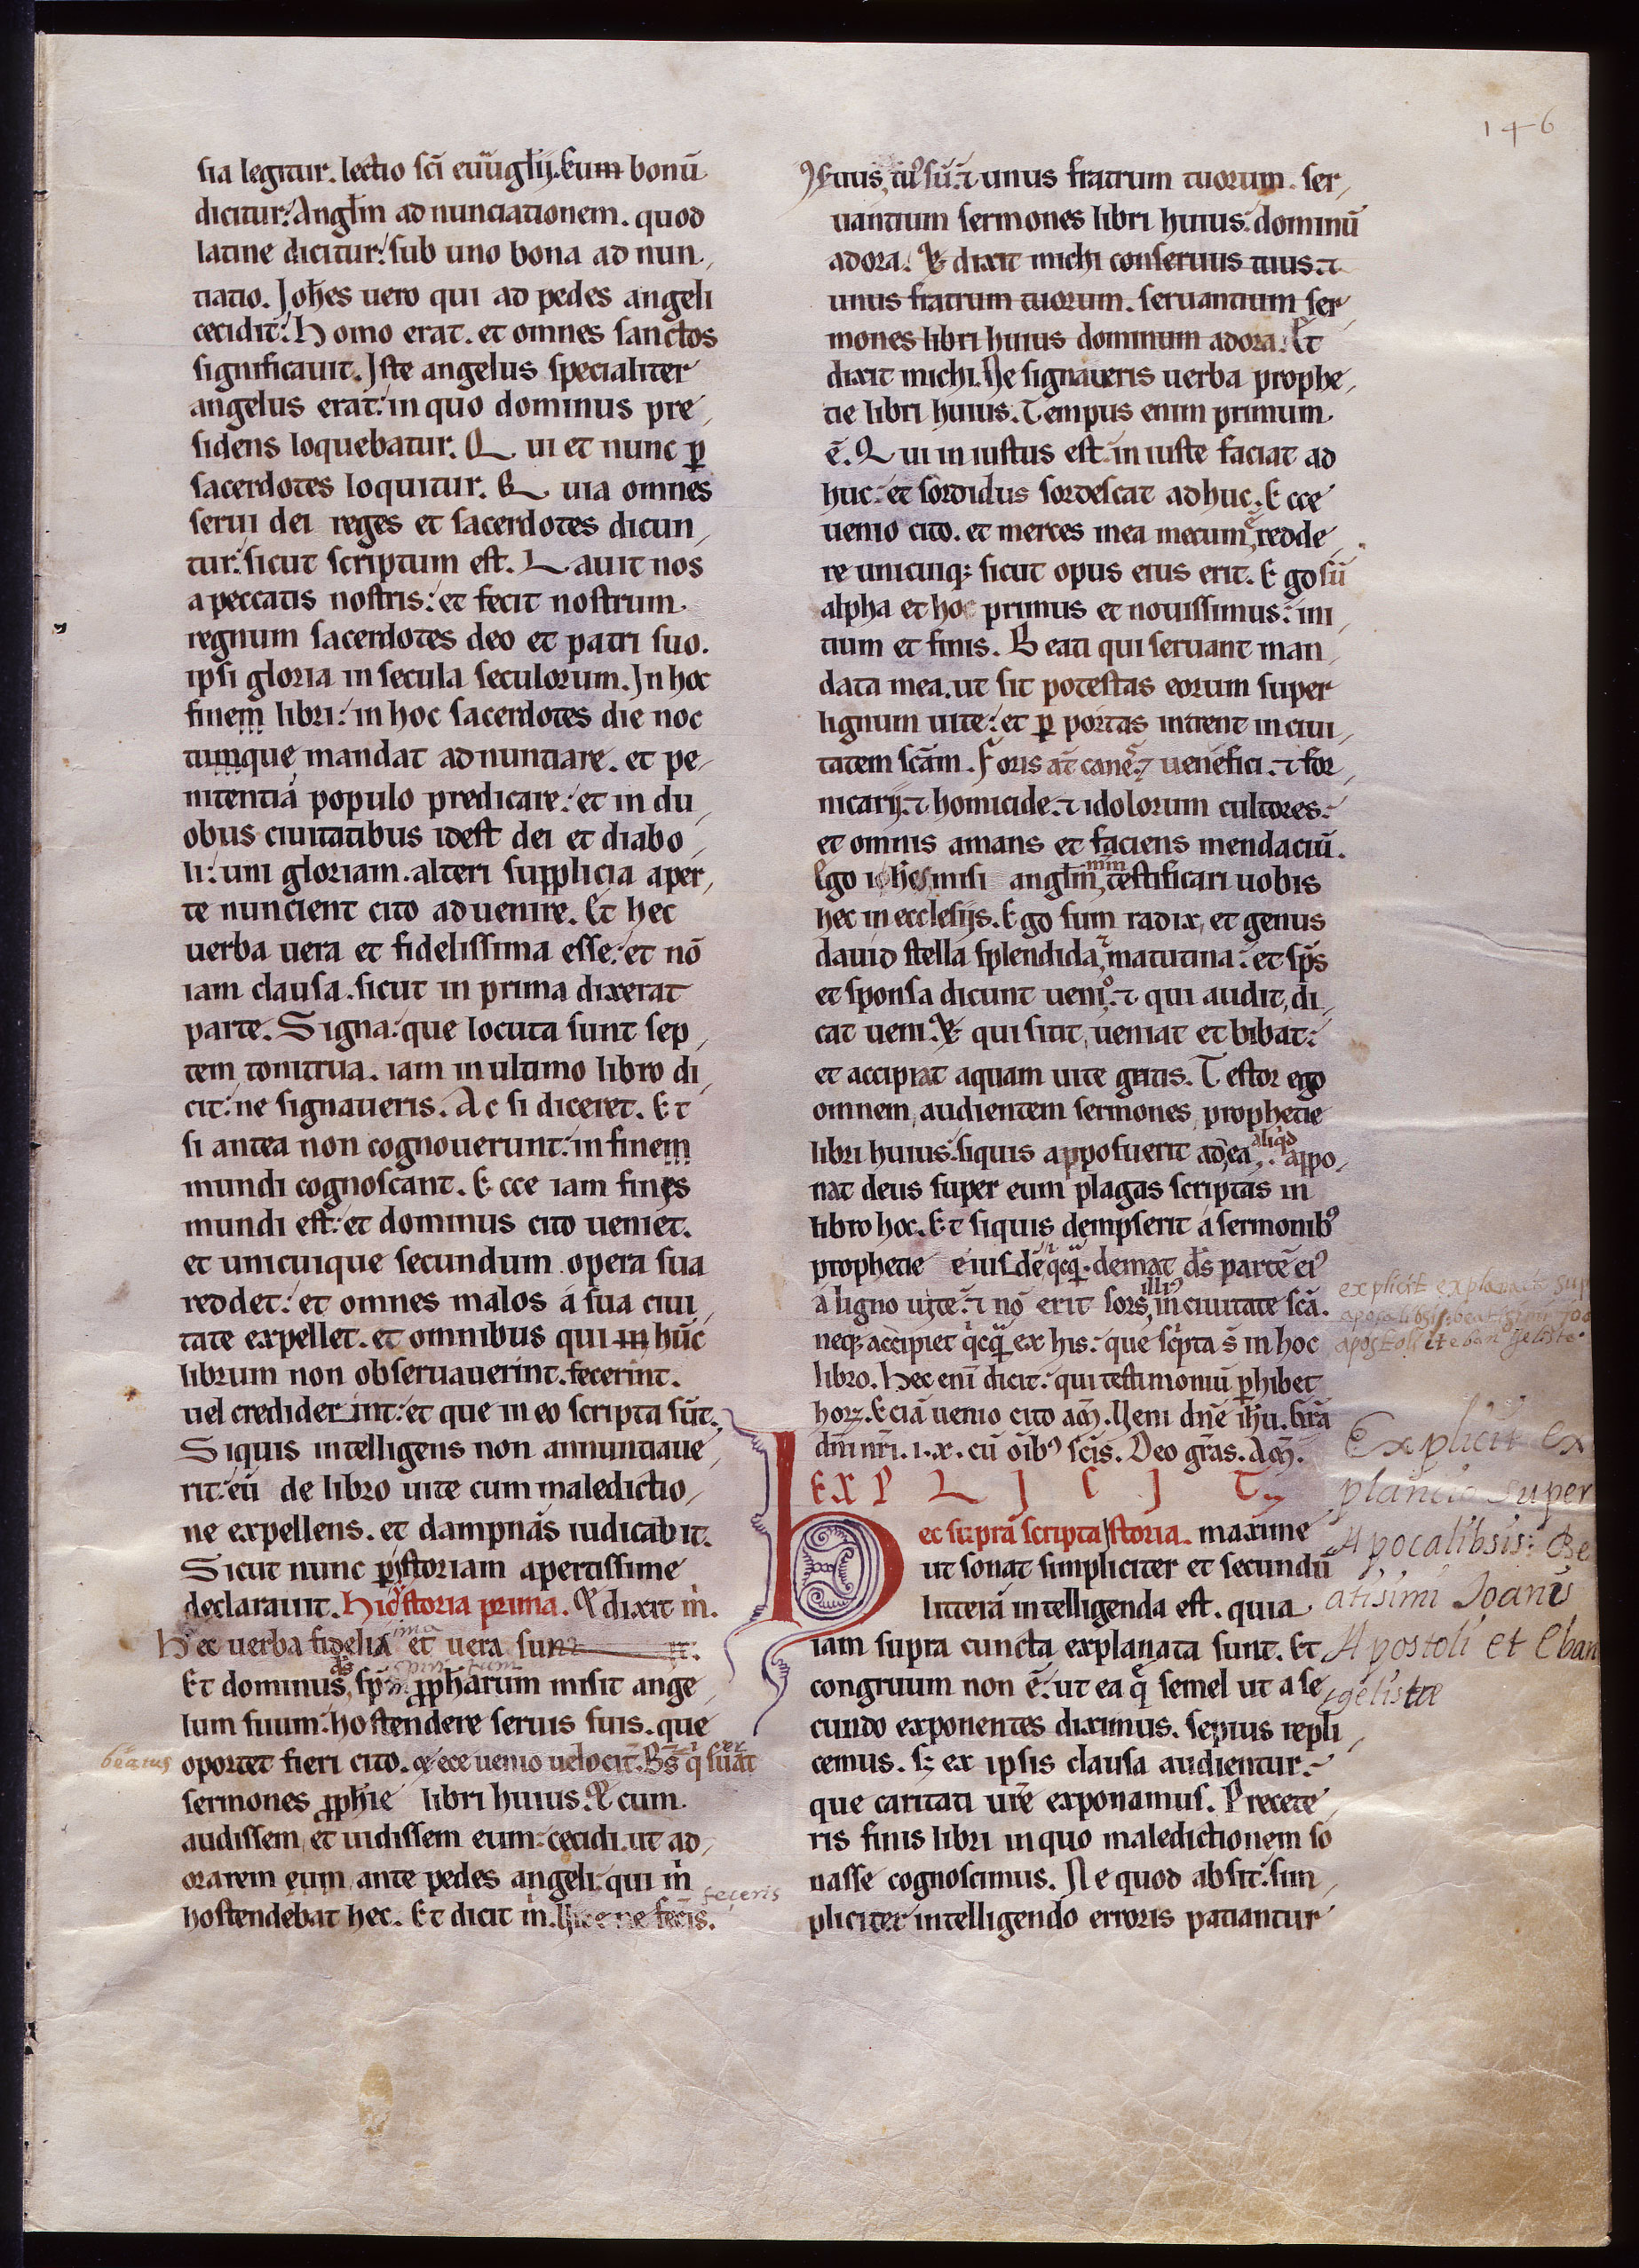 146
sia legitur. lectio sc̄i euūgl̄ij. Eum bonū
dicitur: Angl̄m ad nunciationem. quod
latine dicitur: sub uno bona ad nun,
tiatio. Joh̄es uero qui ad pedes angeli
cecidit: Homo erat. et omnes sanctos
significauit. Jste angelus specialiter
angelus erat: in quo dominus pre,
sidens loquebatur. Qui et nunc ꝑ
sacerdotes loquitur. Quia omnes
serui dei reges et sacerdotes dicun,
tur: sicut scriptum est. Lauit nos
a peccatis nostris: et fecit nostrum
regnum sacerdotes deo et patri suo.
ipsi gloria in secula seculorum. Jn hoc
finem libri: in hoc sacerdotes die noc
tumque mandat adnuntiare. et pe,
nitentiā populo predicare: et in du,
obus ciuitatibus idest dei et diabo,
li: uni gloriam. alteri supplicia aper,
te nuncient cito aduenire. Et hec
uerba uera et fidelissima esse: et nō
iam clausa. sicut in prima dixerat
parte. Signa: que locuta sunt sep,
tem tonitrua. iam in ultimo libro di,
cit: ne signaueris. Ac si diceret. Et
si antea non cognouerunt: in finem
mundi cognoscant. Ecce iam fines
mundi est: et dominus cito ueniet.
et unicuique secundum opera sua
reddet: et omnes malos a sua ciui,
tate expellet. et omnibus qui in hūc
librum non obseruauerint. fecerint.
uel crediderint: et que in eo scripta sūt.
Siquis intelligens non annuntiaue,
rit: eū de libro uite cum maledictio,
ne expellens. et dampnās iudicabit.
Sicut nunc ꝑ istoriam apertissime
declarauit. Hic ystoria prima. Et dixit m̄.
Hec uerba fidelia ima et uera sunt
Et dominus ds sp̄m ꝓph̄arum misit ange,
lum suum: hostendere seruis suis. que
beatus oportet fieri cito. et ece uenio uelocit̄. Bs̄ q̄ suāt
sermones ꝓph̄ie libri huius. Et cum
audissem et uidissem eum: cecidi. ut ad,
orarem eum ante pedes angeli: qui m̄
hostendebat hec. Et dicit m̄. Uice ne fec̄is. feceris
ꝯseruus tuꝰ sū. ⁊ unus fratrum tuorum. ser,
uantium sermones libri huius: dominū
adora. Et dixit michi conseruus tuus. ⁊
unus fratrum tuorum. seruantium ser,
mones libri huius dominum adora. Et
dixit michi. Ne signaueris uerba prophe,
tie libri huius. Tempus enim primum
ē. Qui in iustus est: in iuste faciat ad
huc: et sordidus sordescat adhuc. Ecce
uenio cito. et merces mea mecum ē redde,
re unicuiq; sicut opus eius erit. Ego sū
alpha et hoc primus et nouissimus: ini,
tium et finis. Beati qui seruant man,
data mea. ut sit potestas eorum super
lignum uite: et ꝑ portas intrent in ciui,
tatem sc̄am. Foris at̄ canes. ⁊ uenefici. ⁊ for,
nicarij. ⁊ homicide. ⁊ idolorum cultores:
et omnis amans et faciens mendaciū.
Ego ioh̄es misi angl̄m mīn testificari uobis
hec in ecclesijs. Ego sum radix, et genus
dauid stella splendida, ⁊ matutina: et sp̄s
et sponsa dicunt ueni. ⁊ qui audit, di,
cat ueni. Et qui sitit, ueniat et bibat:
et accipiat aquam uite gratis. Testor ego
omnem audientem sermones prophetie
libri huius: siquis apposuerit ad ea aliqd. appo,
nat deus super eum plagas scriptas in
libro hoc. Et siquis dempserit a sermonibꝰ
prophetie eiusdē q̄cq̄. demat d̄s partē eiꝰ
a ligno uite: ⁊ nō erit sors illiꝰ in ciuitate sc̄a.
neq; accipiet q̄cq̄ ex his: que sc̄pta s̄ in hoc
libro. Hec enī dicit: qui testimoniū ꝑhibet
horꝫ. Eciā uenio cito am̄. Ueni dn̄e ih̄u. Gr̄a
dn̄i nr̄i. i. x. cū oībꝰ sc̄is. Deo gr̄as. Am̄.
EXPLICIT
Hec supra scripta istoria. maxime
ut sonat simpliciter et secundū
litterā intelligenda est. quia
iam supra cuncta explanata sunt. Et
congruum non ē: ut ea q̄ semel ut a se
cundo exponentes diximus. sepius repli,
cemus. sꝫ ex ipsis clausa audientur:
que caritati ur̄e exponamus. Precete,
ris finis libri in quo maledictionem so
nasse cognoscimus. Ne quod absit: sim,
pliciter intelligendo erroris patiantur
explicit explanatio sup
apocalibsis: beatisimi Joa
apostoli et ebangeliste.
Explicit Ex
planatio super
Apocalibsis: Be
atisimi Joanis
Apostoli et Eban
gelistae